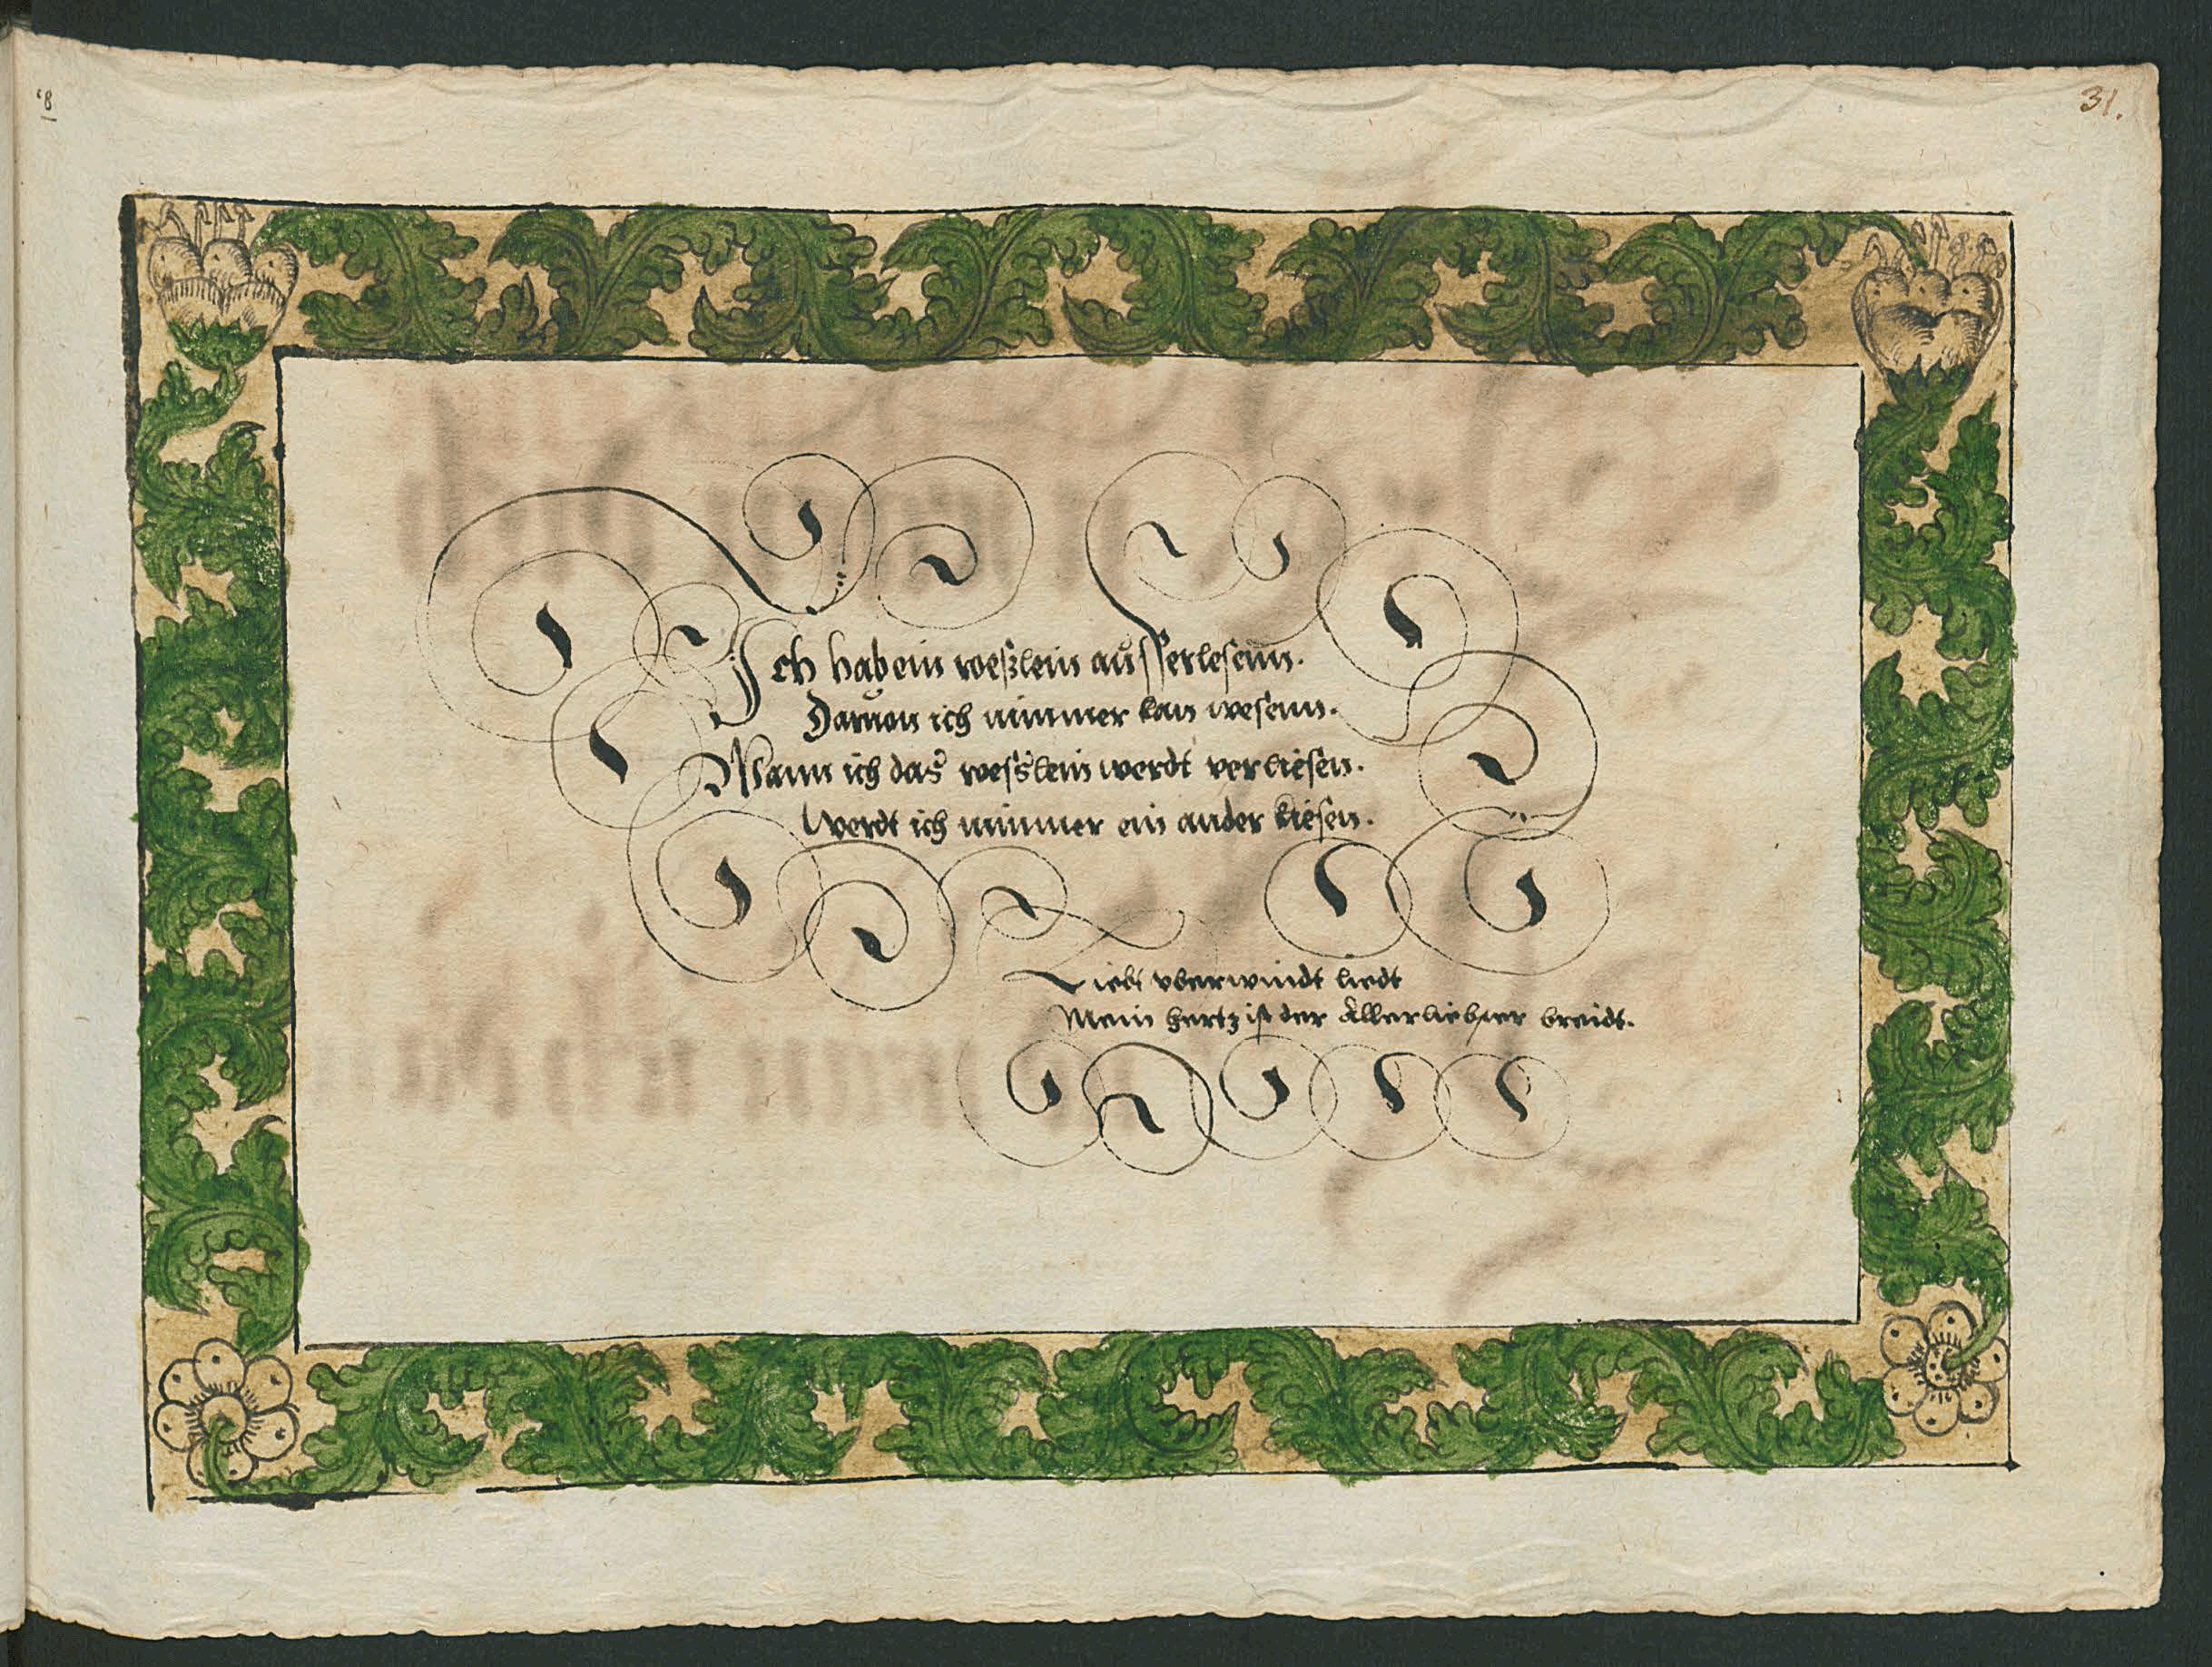 31.
Ich hab ein weßlein ausserlesenn.
Daruon ich nimmer kan wesenn.
Wann ich das wesslein werdt verliesen.
Werdt ich nimmer ein ander kiesen.
Liebt vberwindt liedt
Mein hertz ist der Allerliebster breidt.